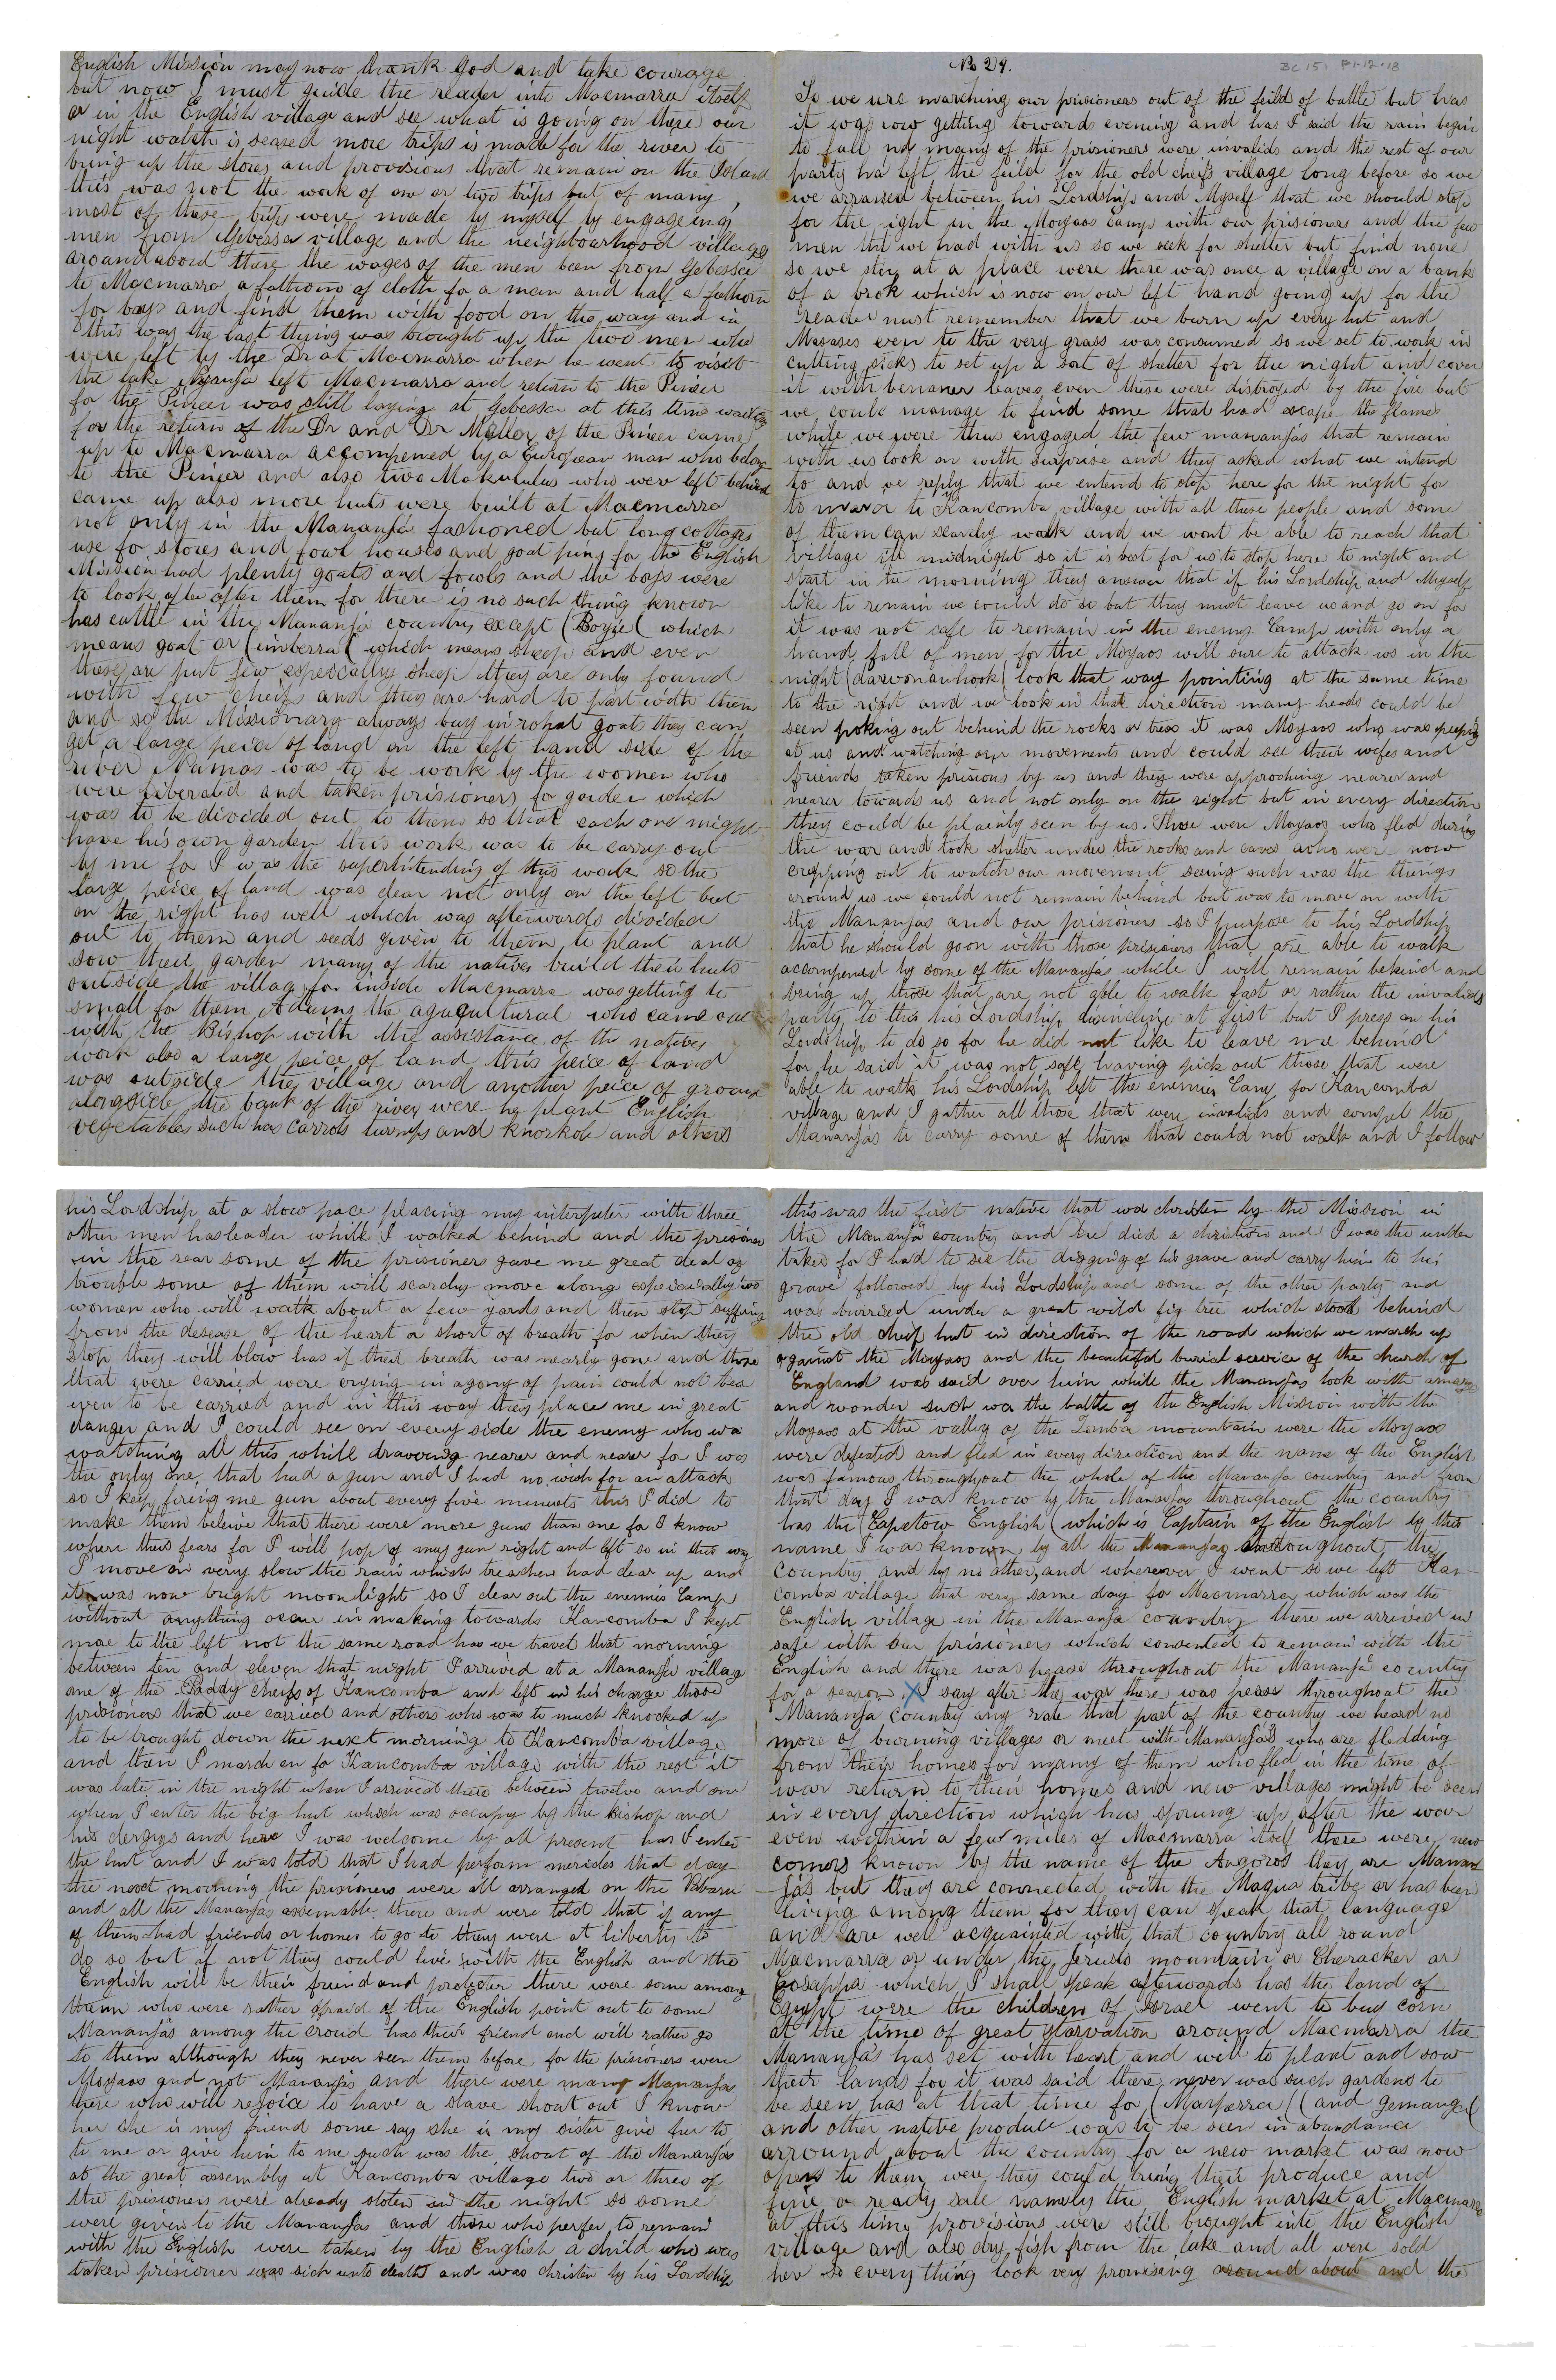 No 24.
BC 151 F1-12-18
So we were marching our prisioners out of the feild of battle but has
it was now getting towards evening and has I said the rain begin
to fall nd many of the prisioners were invalids and the rest of our
party ha left the feild for the old cheifs village long before so we
we arraned between his Lordship and Myself that we should stop
for the night in the Moyaos Camp with our prisioners and the few
men tht we had with us so we seek for shelter but find none
so we stop at a place were there was once a village on a bank
of a brok which is now on our left hand going up for the
reader must remember that we burn up every hut and
Masases even to the very grass was consumed so we set to work in
cutting sicks to set up a sort of shelter for the night and cover
it with bernaner leaves even these were distroyed by the fire but
we could manage to find some that had escape the flames
while we were thus engaged the few mananjas that remain
with us look on with surprise and they asked what we intend
to and we reply that we entend to stop here for the night for
to mover to Kancomba village with all these people and some
of them can scearly walk and we wont be able to reach that
village till midnight so it is best for us to stop here to night and
start in the morning they answer that if his Lordship and Myself
like to remain we could do so but they must leave us and go on for
it was not safe to remain in the enemy Camp with only a
hand full of men for the Moyaos will sure to attack us in the
night (darwonanhook( look that way pointing at the same time
to the right and we look in that direction many heads could be
seen poking out behind the rocks or trees it was Moyaos who was peeping
at us and watching our movements and could see their wifes and
friends taken prisions by us and they were approching nearer and
nearer towards us and not only on the right but in every direction
they could be plainly seen by us. These were Moyaos who fled during
the war and took shelter under the rocks and caves who were now
crepping out to watch our movement seeing such was the things
around us we could not remain behind but was to move on with
the Mananjas and our prisioners so I purpose to his Lordship
that he should goon with those prisioners that are able to walk
accompened by some of the Mananjas while I will remain behind and
bring up those that are not able to walk fast or rather the invalids
party to this his Lordship disincline at first but I press on his
Lordship to do so for he did not like to leave me behind
for he said it was not safe having pick out those that were
able to walk his Lordship left the enemies Camp for Kancomba
village and I gather all those that were invalids and compel the
Mananjas to carry some of them that could not walk and I follow
his Lordship at a slow pace placing my interpeter with three
other men has leader while I walked behind and the prisioner
in the rear some of the prisioners gave me great deal of
trouble some of them will scearchy move along especieally two
women who will walk about a few yards and then stop suffring
from the desease of the heart a short of breath for when they
stop they will blow has if their breath was nearly gone and those
that were carried were crying in agony of pain could not bea
even to be carried and in this way they place me in great
danger and I could see on every side the enemy who wa
watching all this while drawing nearer and nearer for I was
the only one that had a gun and I had no wish for an attack
so I kep fireing me gun about every five minuets this I did to
make them beleive that there were more guns than one for I know
where thus fears for I will pop of my gun right and left so in this way
I move on very slow the rain which treachen had clear up and
it was now bright moonlight so I clear out the enemies Camp
without anything ocour in making towards Kancomba I kept
moe to the left not the same road has we travel that morning
between ten and eleven that night I arrived at a Mananja villag
one of the Paddy cheifs of Kancomba and left in his charge those
prisioners that we carried and others who was to much knocked up
to be brought down the next morning to Kancomba village
and then I march on fo Kancomba village with the rest it
was late in the night when I arrived there between twelve and one
when I enter the big hut which was occupy by the Bishop and
his clergys and here I was welcome by all present has I enter
the hut and I was told that I had perform mericles that day
the next morning the prisioners were all arranged on the Bbaru
and all the Mananjas assemable there and were told that if any
of them had friends or homes to go to they were at liberty to
do so but if not they could live with the English and the
English will be their friend and protecter there were some among
them who were rather afraid of the English point out to some
Mananjas among the croud has their friend and will rather go
to them although they never seen them before for the prisioners were
Moyaos and not Mananjas and there were many Mananjas
there who will rejoice to have a slave shout out I know
her she is my friend some say she is my sister give her to
to me or give him to me such was the shout of the Mananjas
at the great assembly at Kancomba village two or three of
the prisioners were already stolen in the night so some
were given to the Mananjas and those who perfer to remain
with the English were taken by the English a child who was
taken prisioner was sick unto death and was christen by his Lordship
this was the first native that wa christen by the Mission in
the Mananja country and he died a christion and I was the under
taker for I had to see the digging of his grave and carry him to his
grave followed by his Lordship and some of the other party and
was burried under a great wild fig tree which stood behind
the old cheif hut in direction of the road which we march up
against the Moyaos and the beautiful burial service of the church of
England was said over him while the Mananjas look with amaze
and wonder such wa the battle of the English Mission with the
Moyaos at the valley of the Zomba mountain were the Moyaos
were defeated and fled in every direction and the name of the English
was famous throughout the whole of the Mananja country and from
that day I was know by the Mananjas throughout the country
has the (Capetow English (which is Captain of the English by this
name I was known by all the Mananjas throughout the
country and by no other and wherever I went so we left Kan-
comba village that very same day for Macmarra which was the
English village in the Mananja country there we arrived in
safe with our prisioners which consented to remain with the
English and there was pease throughout the Mananja country
for a season X I say after the war there was pease throughout the
Mananja country any rate that part of the country we heard no
more of burning villages or meet with Mananjas who are fledding
from their homes for many of them who fled in the time of
war return to their homes and new villages might be seen
in every direction which has sprung up after the war
even within a few miles of Macmarra itself there were new
comers known by the name of the Angoros they are Manan
-jas but they are connected with the Maqua tribe or has been
living among them for they can speak that language
and are well acquainted with that country all round
Macmarra or under the Jerusio mountain or Cheracker or
Sosappa which I shall speak afterwards has the land of
Egypt were the children of Israel went to buy corn
at the time of great starvation around Macmarra the
Mananjas has set with heart and will to plant and sow
their lands for it was said there never was such gardens to
be seen has at that time for (Marparra( (and Jemanga(
and other native produce was to be seen in abundance
arround about the country for a new market was now
open to them were they could bring their produce and
fine a ready sale namely the English market at Macmarra
at this time provisions were still brought into the English
village and also dry fish from the lake and all were sold
her so everything look very promising around about and the
English Mission may now thank God and take courage
but now I must guide the reader into Macmarra itself
or in the English village and see what is going on there our
night watch is seased more trips is made for the river to
bring up the stores and provisions that remain on the Island
this was not the work of one or two trips but of many
most of these trips were made by myself by engageing
men from Gebessa village and the neighbourhood villages
around about there the wages of the men been from Gebessa
to Macmarra a fathom of cloth fo a man and half a fathom
for boys and find them with food on the way and in
this way the last thing was brought up the two men who
were left by the Dr at Macmarra when he went to visit
the lake Nyanja left Macmarra and return to the Pineer
for the Pineer was still laying at Gebessa at this time waiting
for the return of the Dr and Dr Meller of the Pineer came
up to Macmarra accompened by a European man who belong
to the Pineer and also two Makululus who were left behind
came up also more huts were built at Macmarra
not only in the Mananja fashioned but long cottages
use fo stores and fowl houses and goat pens for the English
Mission had plenty goats and fowls and the boys were
to look after after them for there is no such thing known
has cattle in the Mananja country except (Boyie( which
means goat or (imberra( which means sheep and even
these are put few especically sheep they are only found
with few cheifs and they are hard to part with them
and so the Missionary always buy in rohat goat they can
get a large peice of land on the left hand side of the
river Namas was to be work by the women who
were liberated and taken prisioners fo garden which
was to be divided out to them so that each one might
have his own garden this work was to be carry out
by me fo I was the superintending of this work so the
large peice of land was clear not only on the left but
on the right has well which was afterwards divided
out to them and seeds given to them to plant and
sow their garden many of the natives build their huts
outside the village for inside Macmarra was getting to
small for them Adams the agacultural who came out
with the Bishop with the assistance of the natives
work also a large peice of land this peice of land
was outside the village and another peice of ground
alongside the bank of the river were he plant English
vegetables such has Carrots turnips and knorkole and others